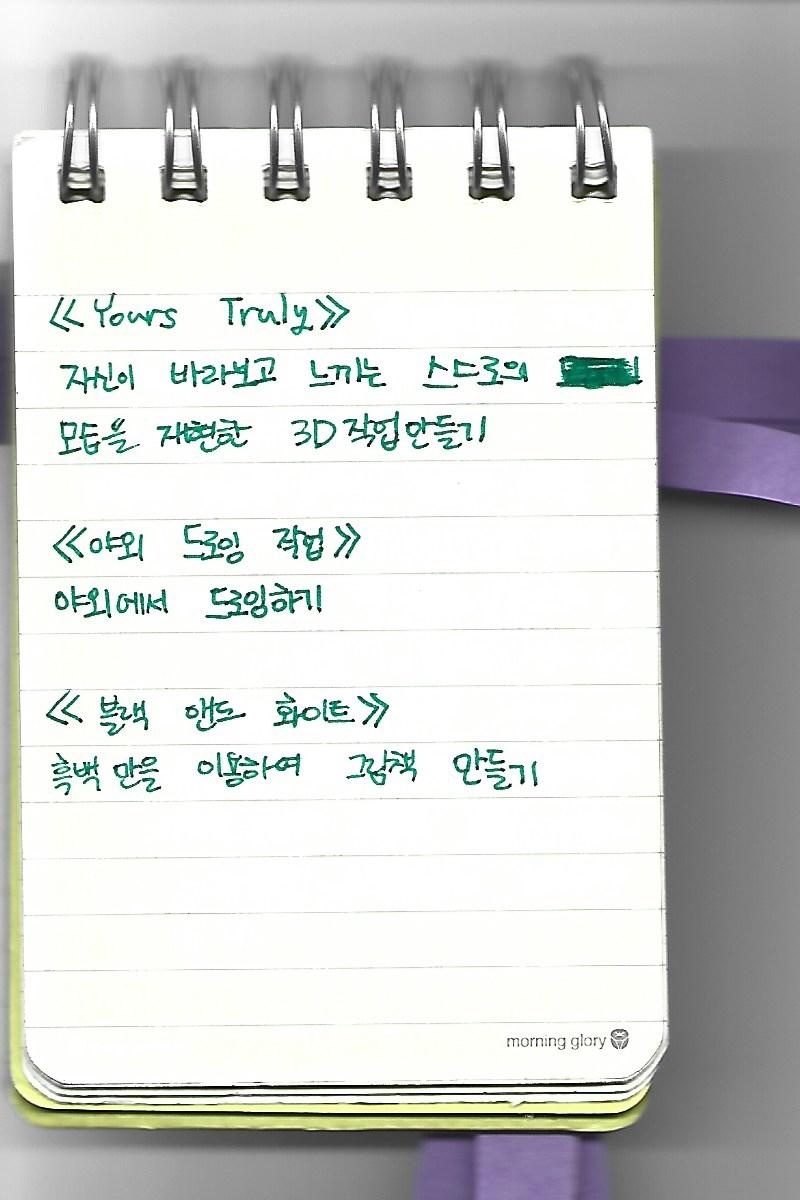 ≪Yours Truly≫
자신이 바라보고 느끼는 스스로의
모습을 재현한 3D 작업 만들기
≪야외 드로잉 작업≫
야외에서 드로잉하기
≪블랙 앤드 화이트≫
흑백 만을 이용하여 그림책 만들기
morning glory